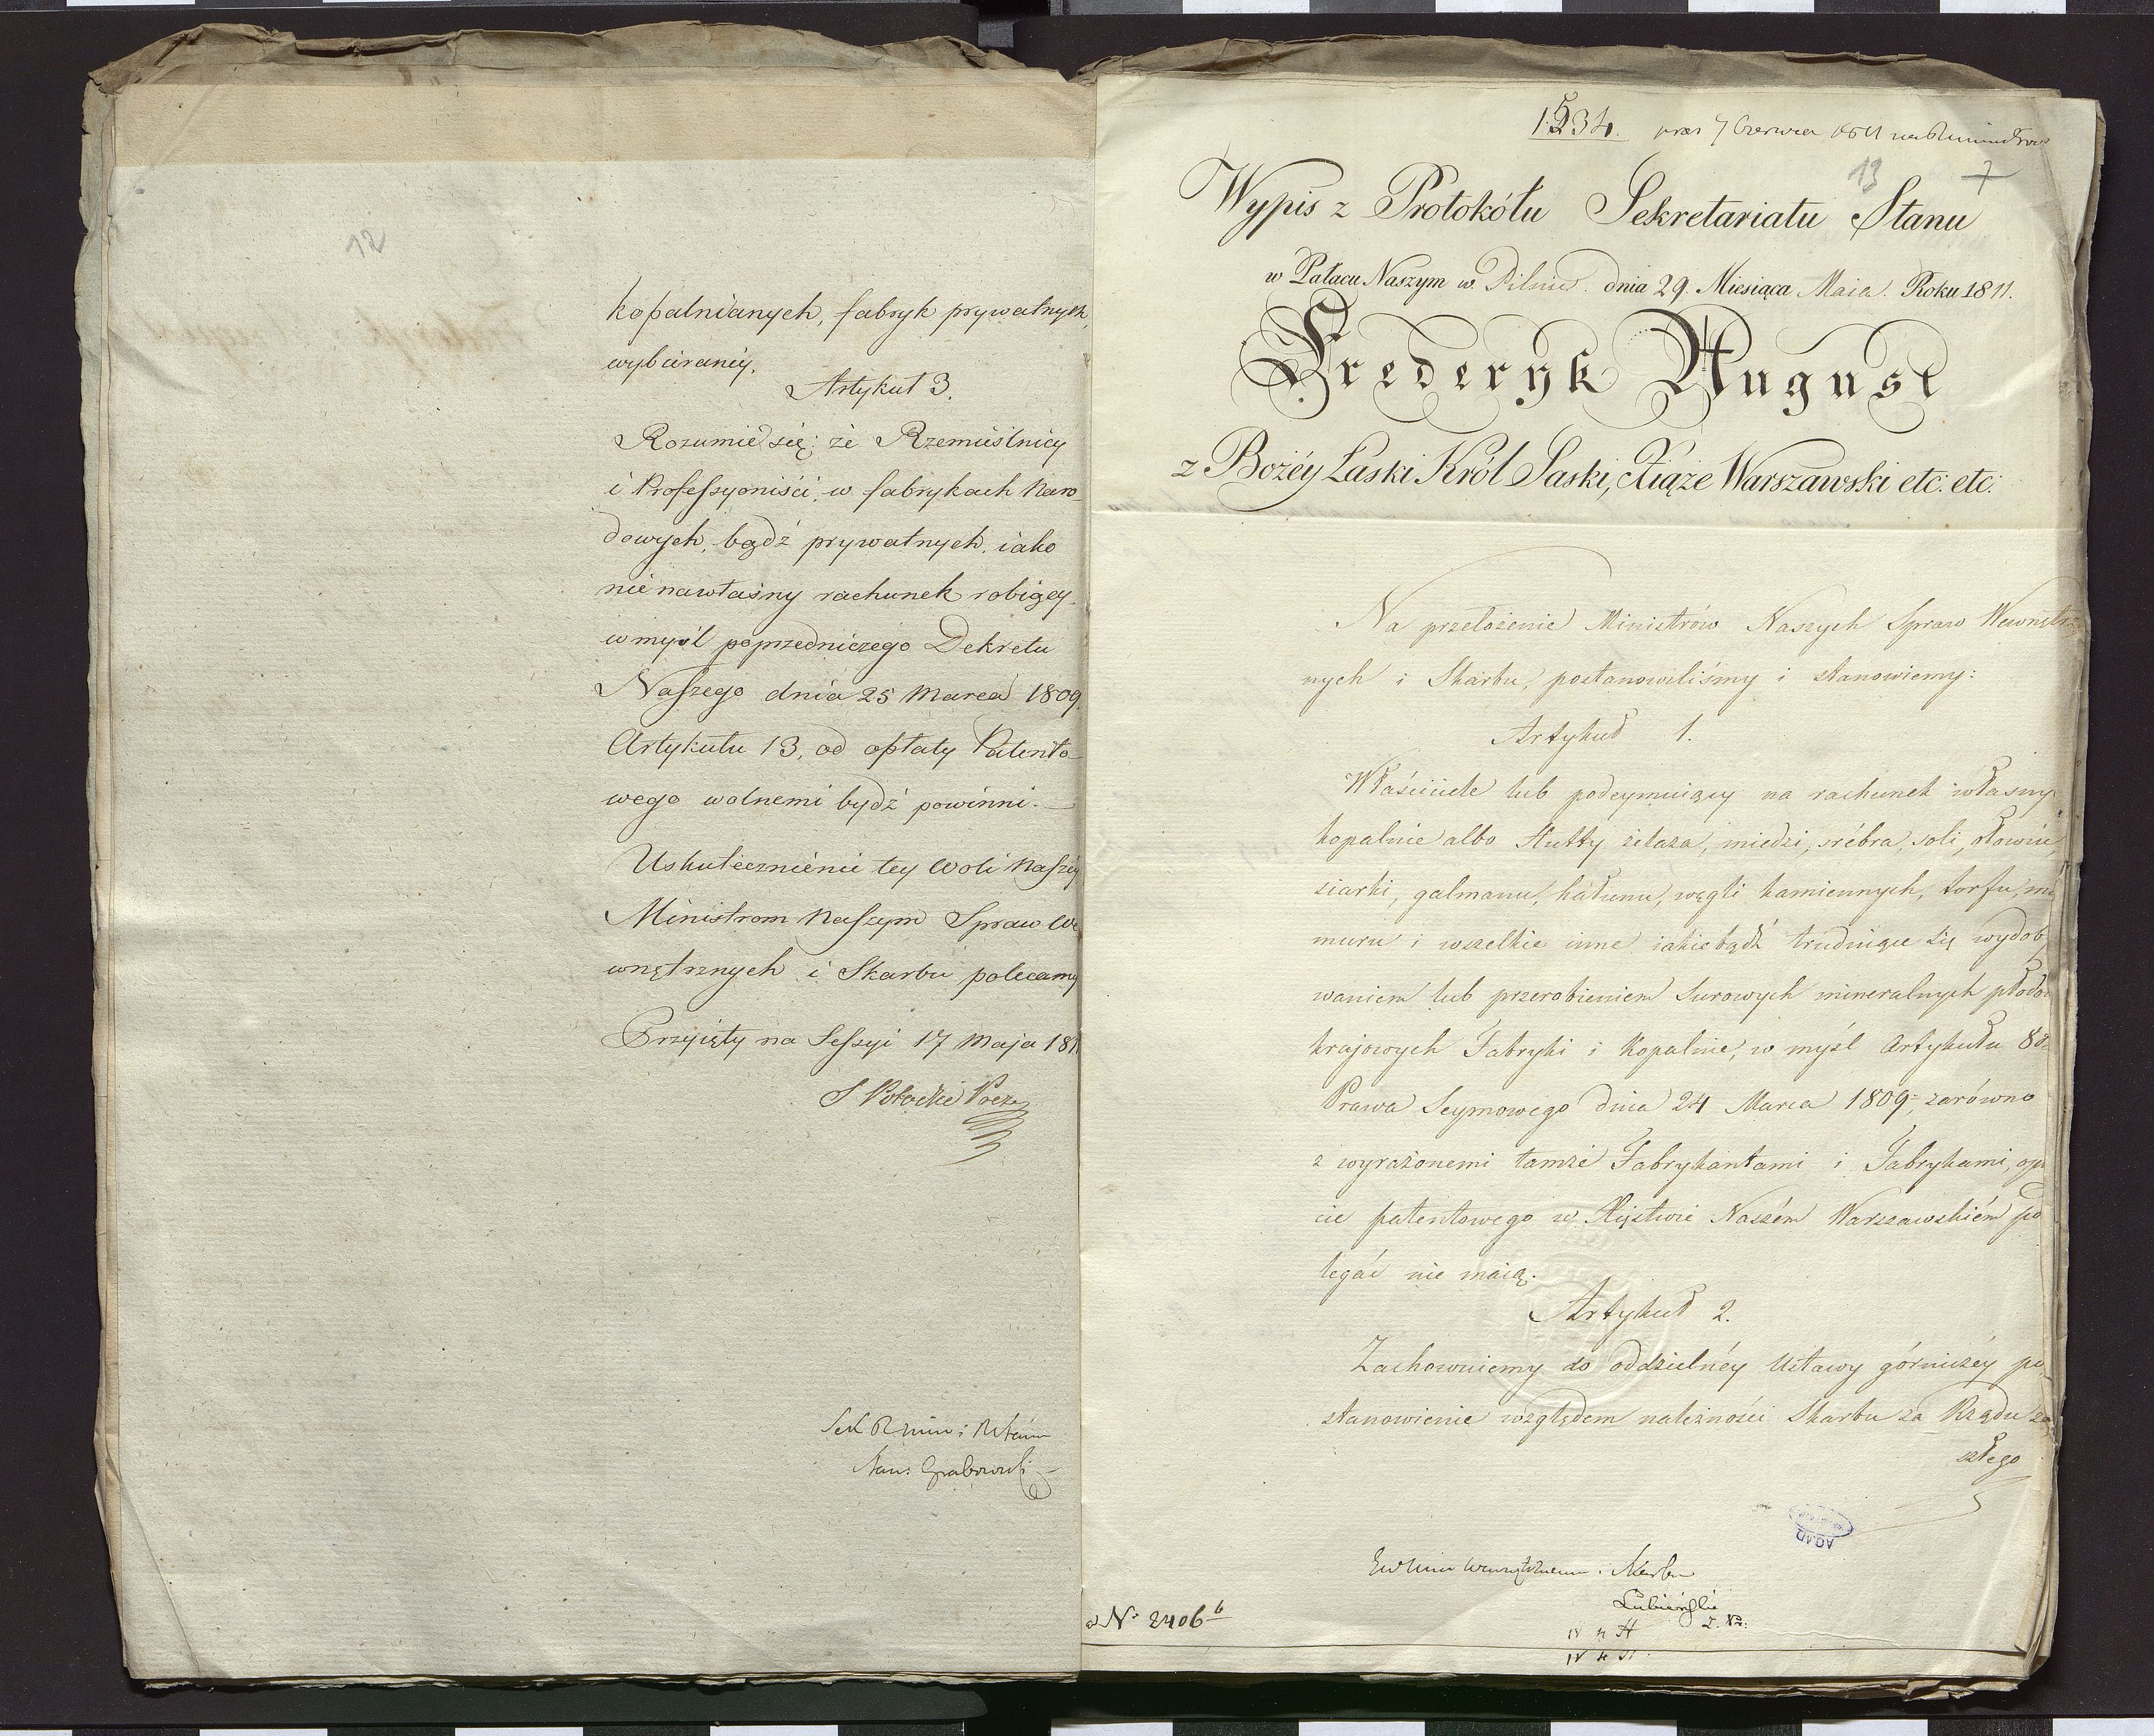 12
kopalnianych, fabryk prywatnych,
wybiraney.
Artykuł 3.
Rozumie się; że Rzemieślnicy
i Professyoniści, w fabrykach Naro-
dowych, bądź prywatnych, iako
nie na własny rachunek robiący,
w myśl poprzedniczego Dekretu
Naszego dnia 25 Marca 1809.
Artykułu 13, od opłaty Patento-
wego wolnemi bydź powinni.—
Uskutecznienie tey Woli Naszéy
Ministrom Naszym Spraw We
wnętrznych i Skarbu polecamy
Przyięty na Sessyi 17 Maja 181
S Potocki Prezes
Stan: Grabowski
1534. pres 7 Czerwca 1811
13 7
Wypis z Protokółu Sekretariatu Stanu
w Pałacu Naszym w Pilnic. dnia 29. Miesiąca Maia. Roku 1811.
Frederyk August
z Bożéy Łaski Król Saski, Xiąże Warszawski etc: etc:
Na przełożenie Ministrów Naszych Spraw Wewnętrz
nych i Skarbu, postanowiliśmy i stanowiemy:
Artykuł 1.
Właściciele lub podeymuiący na rachunek własny
kopalnie albo Hutty żelaza, miedzi, srébra, soli, ołowiu,
siarki, galmanu, hałunu, węgli kamiennych, torfu, mar
muru i wszelkie inne iakie bądź trudniące się wydoby
waniem lub przerobieniem surowych mineralnych płodów
krajowych Fabryki i Kopalnie, w myśl Artykułu 88
Prawa Seymowego dnia 24 Marca 1809, zarówno
z wyrażonemi tamże Fabrykantami i Fabrykami, opła
cie patentowego w Xięstwie Naszém Warszawskiém po
legać nie maią.
Artykuł 2.
Zachowuiemy do oddzielnéy Ustawy górniczéy po
stanowienie względem należności Skarbu za Rządu za
szłego
AGAD
Skarbu
Łubieński
N° 2406 b